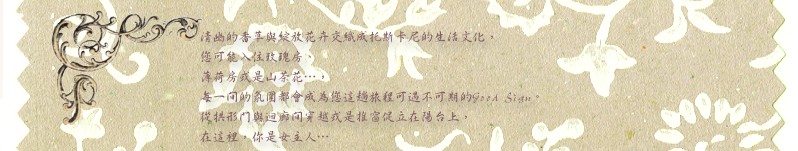 清幽的香草與綻放花卉交織成托斯卡尼的生活文化。
您可能入住玫瑰房、
薄荷房或是山茶花…，
每一間的氛圍都會成為您這趟旅程可遇不可期的Good Sign。
從拱形門與迴廊間穿越或是推窗促立在陽台上，
在這裡，你是女主人…